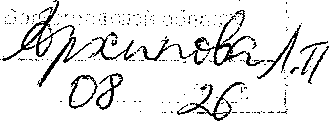 Архипова Л.П
08 26